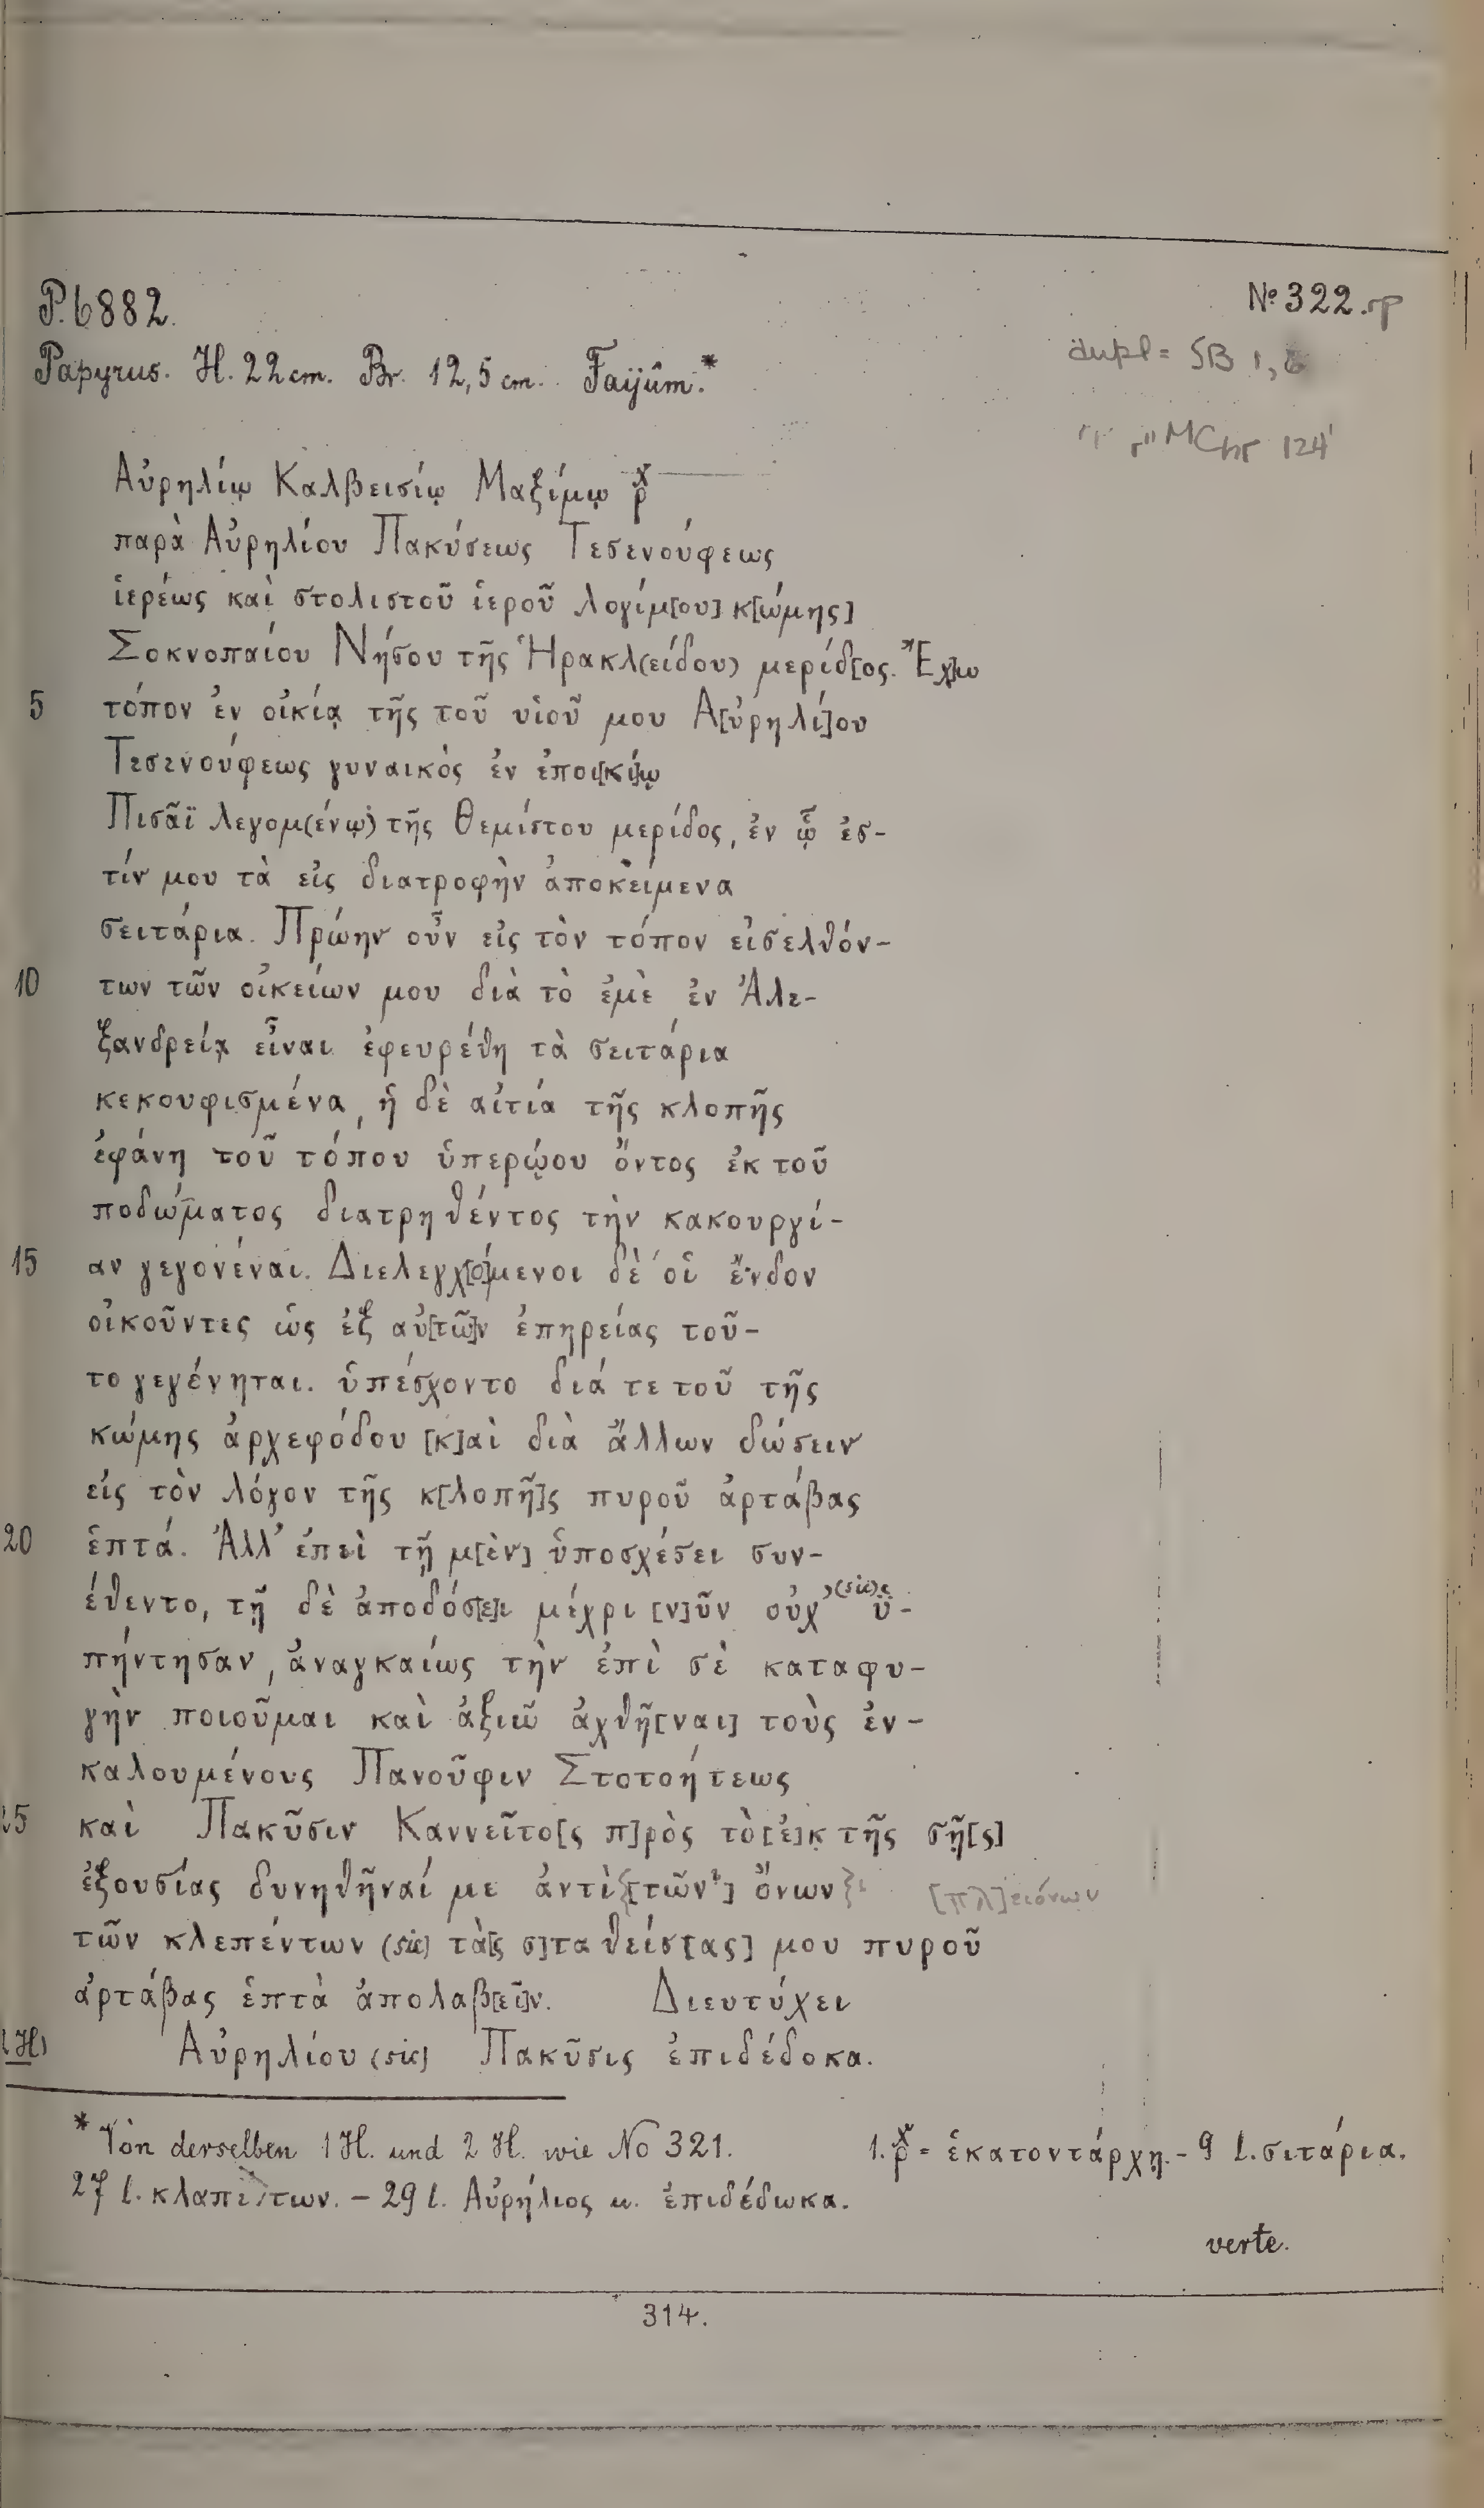 P. 6882.
No 322.
Papyrus. H. 22 cm. Br. 12,5 cm. Faijûm.*
dupl = SB 1,
MChr 124
Αὐρηλίῳ Καλβεισίῳ Μαξίμῳ
παρὰ Αὐρηλίου Πακύσεως Τεσενούφεως
ἱερέως καὶ στολιστοῦ ἱεροῦ λογίμ[ου] κ[ώμης]
Σοκνοπαίου Νήσου τῆς Ἡρακλ(είδου) μερίδ[ος. Ἔχ]ω
5 τόπον ἐν οἰκίᾳ τῆς τοῦ υἱοῦ μου Α[ὐρηλί]ου
Τεσενούφεως γυναικὸς ἐν ἐποι[κί]ῳ
Πισᾶϊ λεγομ(ένῳ) τῆς Θεμίστου μερίδος, ἐν ᾧ ἐσ-
τίν μου τὰ εἰς διατροφὴν ἀποκείμενα
σειτάρια. Πρώην οὖν εἰς τὸν τόπον εἰσελθόν-
10 των τῶν οἰκείων μου διὰ τὸ ἐμὲ ἐν Ἀλε-
ξανδρείᾳ εἶναι ἐφευρέθη τὰ σειτάρια
κεκουφισμένα, ἡ δὲ αἰτία τῆς κλοπῆς
ἐφάνη τοῦ τόπου ὑπερῴου ὄντος ἐκ τοῦ
ποδώματος διατρηθέντος τὴν κακουργί-
15 αν γεγονέναι. Διελεγχ[ό]μενοι δὲ οἱ ἔνδον
οἰκοῦντες ὡς ἐξ αὐ[τῶ]ν ἐπηρείας τοῦ-
το γεγένηται. ὑπέσχοντο διά τε τοῦ τῆς
κώμης ἀρχεφόδου [κ]αὶ διὰ ἄλλων δώσειν
εἰς τὸν λόγον τῆς κ[λοπῆ]ς πυροῦ ἀρτάβας
20 ἑπτά. Ἀλλ' ἐπεὶ τῇ μ[ὲν] ὑποσχέσει συν-
έθεντο, τῇ δὲ ἀποδόσ[ε]ι μέχρι [ν]ῦν οὐχ' (sic) ὑ-
πήντησαν, ἀναγκαίως τὴν ἐπὶ σὲ καταφυ-
γὴν ποιοῦμαι καὶ ἀξιῶ ἀχθῆ[ναι] τοὺς ἐν-
καλουμένους Πανοῦφιν Στοτοήτεως
25 καὶ Πακῦσιν Καννεῖτο[ς π]ρὸς τὸ [ἐ]κ τῆς σῆ[ς]
ἐξουσίας δυνηθῆναί με ἀντὶ [τῶν] ὄνων [πλ]ειόνων
τῶν κλεπέντων (sic) τὰ[ς σ]ταθείσ[ας] μου πυροῦ
ἀρτάβας ἑπτὰ ἀπολαβ[εῖ]ν. Διευτύχει
(2 H) Αὐρηλίου (sic) Πακῦσις ἐπιδέδοκα.
* Von derselben 1 H. und 2 H. wie No 321. 1. = ἑκατοντάρχῃ. – 9 l. σιτάρια.
27 l. κλαπέντων. – 29 l. Αὐρήλιος u. ἐπιδέδωκα.
verte.
314.